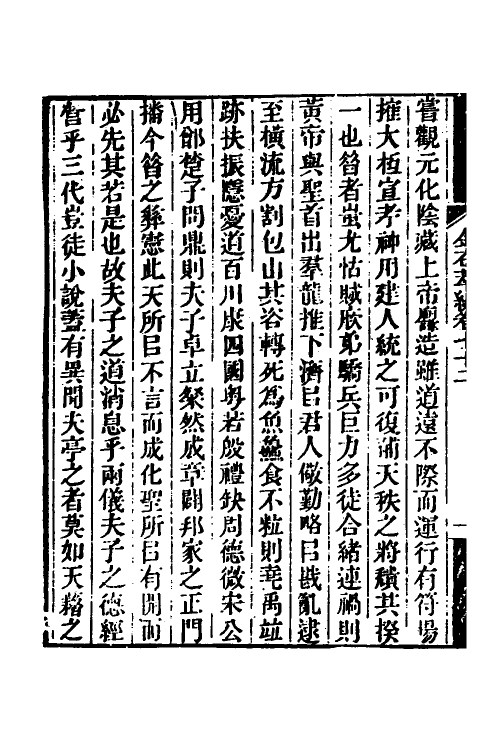 嘗觀元化陰藏上帝靈造雖道遠不際而運行有符場
擁大樞宣考神用建人統之可復補天秩之將頹其揆
一也昝者蚩尤怙賊厥弟驕兵巨力多徒合緒連禍則
黃帝與聖首出羣龍推下濟㠯君人儆勤略㠯戡亂逮
至橫流方割包山其谷轉死為魚鱻食不粒則堯禹竝
跡扶振隱憂道百川康四國粤若殷禮缺周德微宋公
用鄫楚子問鼎則夫子卓立粲然成章闢邦家之正門
播今昝之彝憲此天所㠯不言而成化聖所㠯有開而
必先其若是也故夫子之道消息乎兩儀夫子之德經
營乎三代豈徒小說蓋有異聞夫亭之者莫如天籍之
金石萃編卷七十二
一